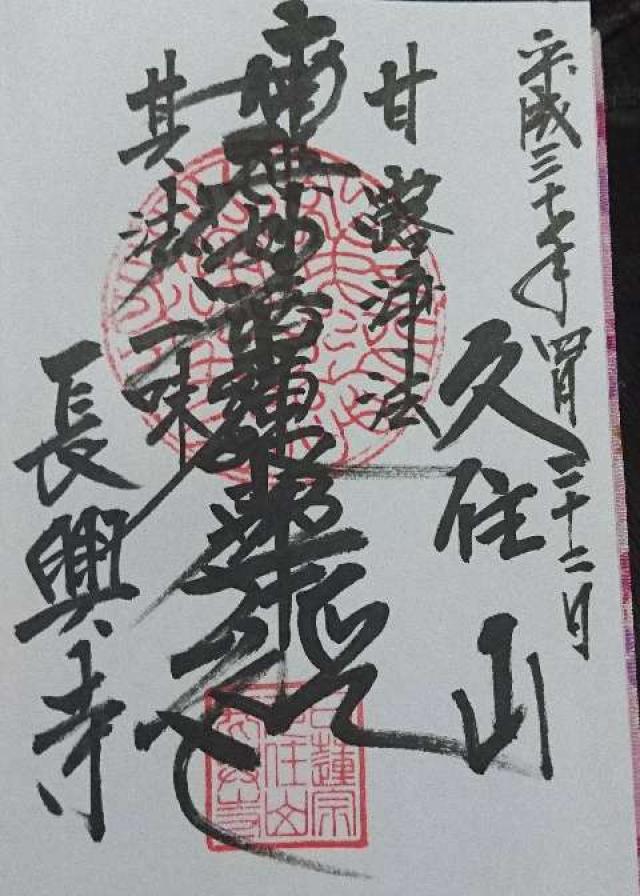 平成三十年四月二十二日
久住山
甘露浄法
南無妙法蓮華経
其法一味
長興寺
日蓮宗
久住山
長興寺